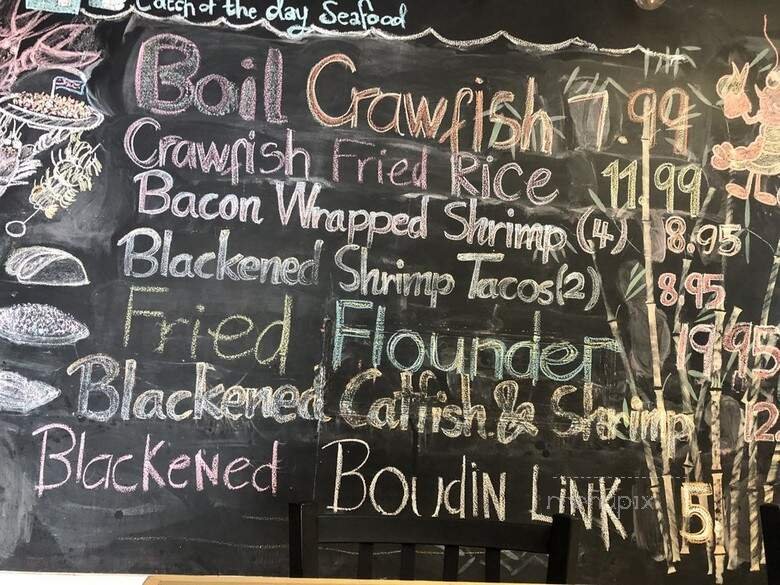 Catch of the day Seafood
Boil Crawfish 7.99
Crawfish Fried Rice 11.99
Bacon Wrapped Shrimp (4) 8.95
Blackened Shrimp Tacos (2) 8.95
Fried Flounder 19.95
Blackened Catfish & Shrimp 12
Blackened Boudin Link 5
menupix